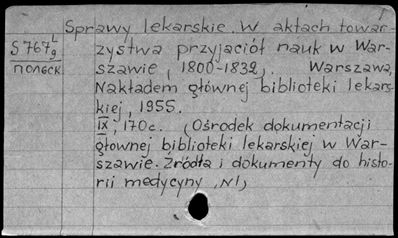 Sprawy lekarskie. W aktach towar-
S 767/9 L
zystwa przyjaciół nauk w War-
польск
szawie, 1800-1832,. Warszawa,
Nakładem głównej biblioteki lekars-
kiej, 1955.
IX, 170 с. (Ośrodek dokumentacji
głownej biblioteki lekarskiej w War-
szawie. Źródła i dokumenty do histo-
rii medycyny, N1,)